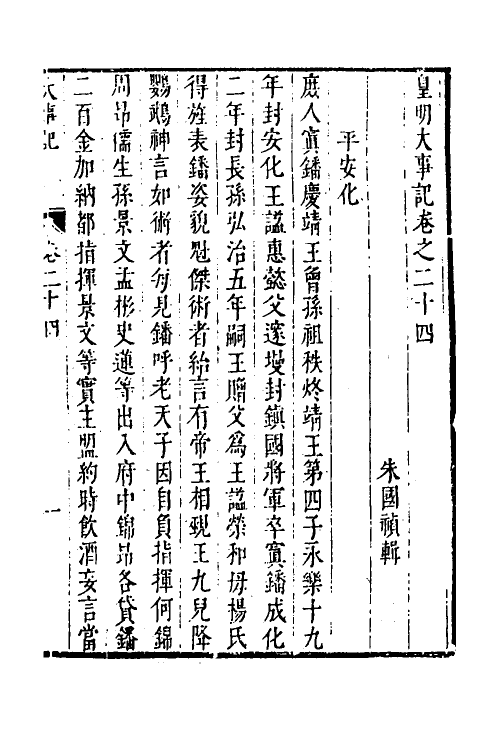 皇明大事記卷之二十四
朱國禎輯
平安化
庶人寘鐇慶靖王曾孫祖秩炵靖王第四子永樂十九
年封安化王諡惠懿父邃墁封鎮國將軍卒寘鐇成化
二年封長孫弘治五年嗣王贈父爲王諡榮和母楊氏
得旌表鐇姿貌魁傑術者紿言有帝王相覡王九兒降
鸚鵡神言如術者每見鐇呼老天子因自負指揮何錦
周昂儒生孫景文孟彬史連等出入府中錦昂各貸鐇
二百金加納都指揮景文等實主盟約時飲酒妄言當
大事記 卷二十四 一